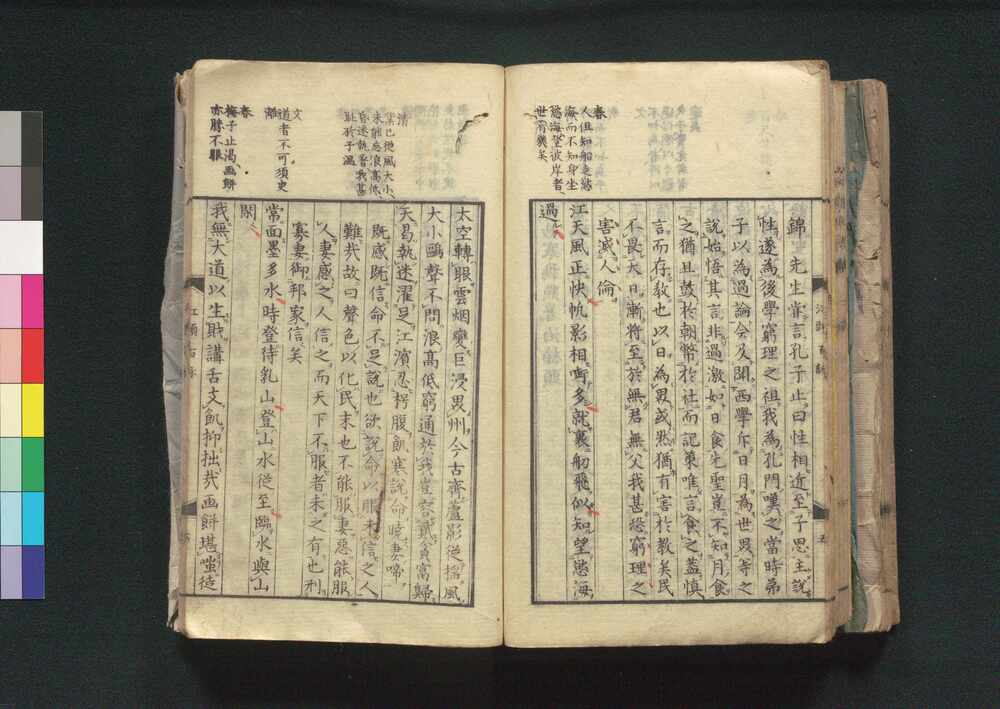 春
人但知船走愁
海而不知身坐
愁海望彼岸者
世有幾矣
錦宇先生嘗言孔子止曰性相近至子思主說
性遂為後學窮理之祖我為孔門嘆之當時弟
子以為過論今久聞西學斥日月為世界等之
說始悟其言非過激如日食先聖豈不知月食
之猶且鼓於朝幣於社而記策唯言食之蓋慎
言而存教也以日為界或然猶有害於教矣民
不畏大日漸將至於無君無父我甚恐窮理之
害滅人倫
江天風正快帆影相嘶多就裏舠飛似知望愁海
過
清
業已從風大小
未能忘浪高低
昏迷執着我甚
耻於子溫
文
道者不可須臾
離
春
梅子止渴画餅
亦勝不服
太空轉眼雲烟變巨浸畏州今古齊盧影從搖風
大小鷗聲不問浪高低窮通於我豈窮富歸
天曷執迷濯足江濱忍枵腹飢寒說命暁妻啼
既感既信命不足說也欲說命以服未信之人
難哉故曰聲色以化民末也不能服妻惡能服
人妻感之人信之而天下不服者未之有也刑
寡妻御邦家信矣
常面墨多水時登待乳山登山水從至臨水與山
閑
我無大道以生財講舌文飢抑拙哉画餅堪嗤徒